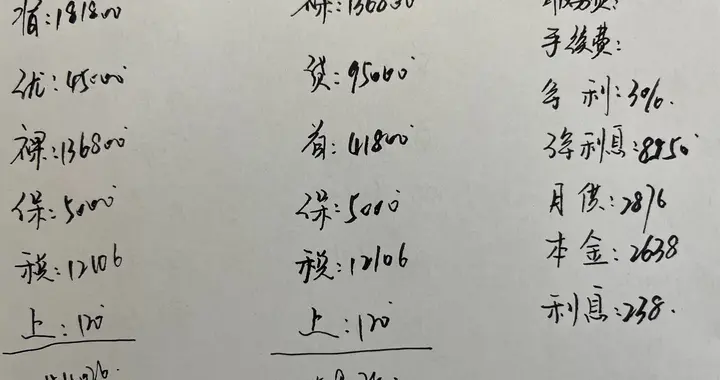 :181800
优:45000
裸:136800
保:5000
税:12106
上:120
裸:136800
贷:95000
首:41800
保:5000
税:12106
上:120
手续费:
年利:3%.
3年利息:8550
月供:2876
本金:2638
利息:238.